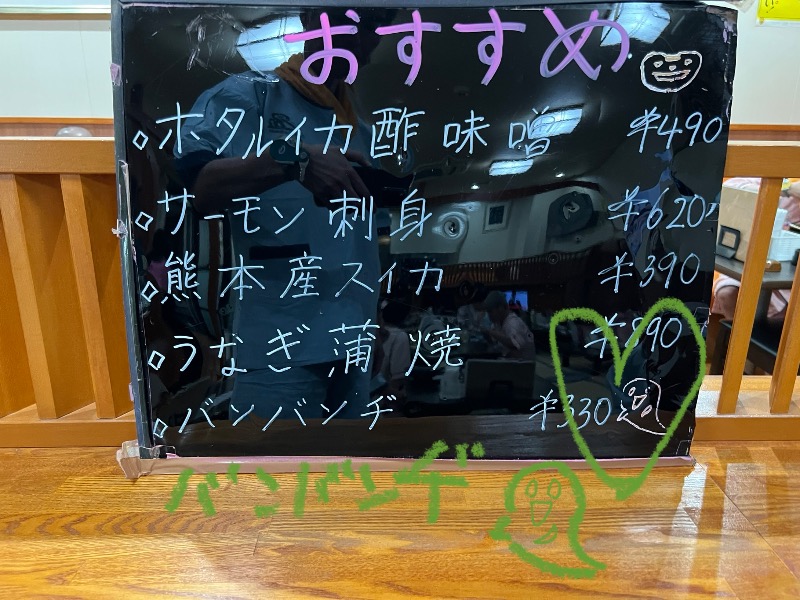 おすすめ
ホタルイカ酢味噌 ¥490
サーモン刺身 ¥620
熊本産スイカ ¥390
うなぎ蒲焼 ¥890
バンバンヂ ¥330
バンバンヂ